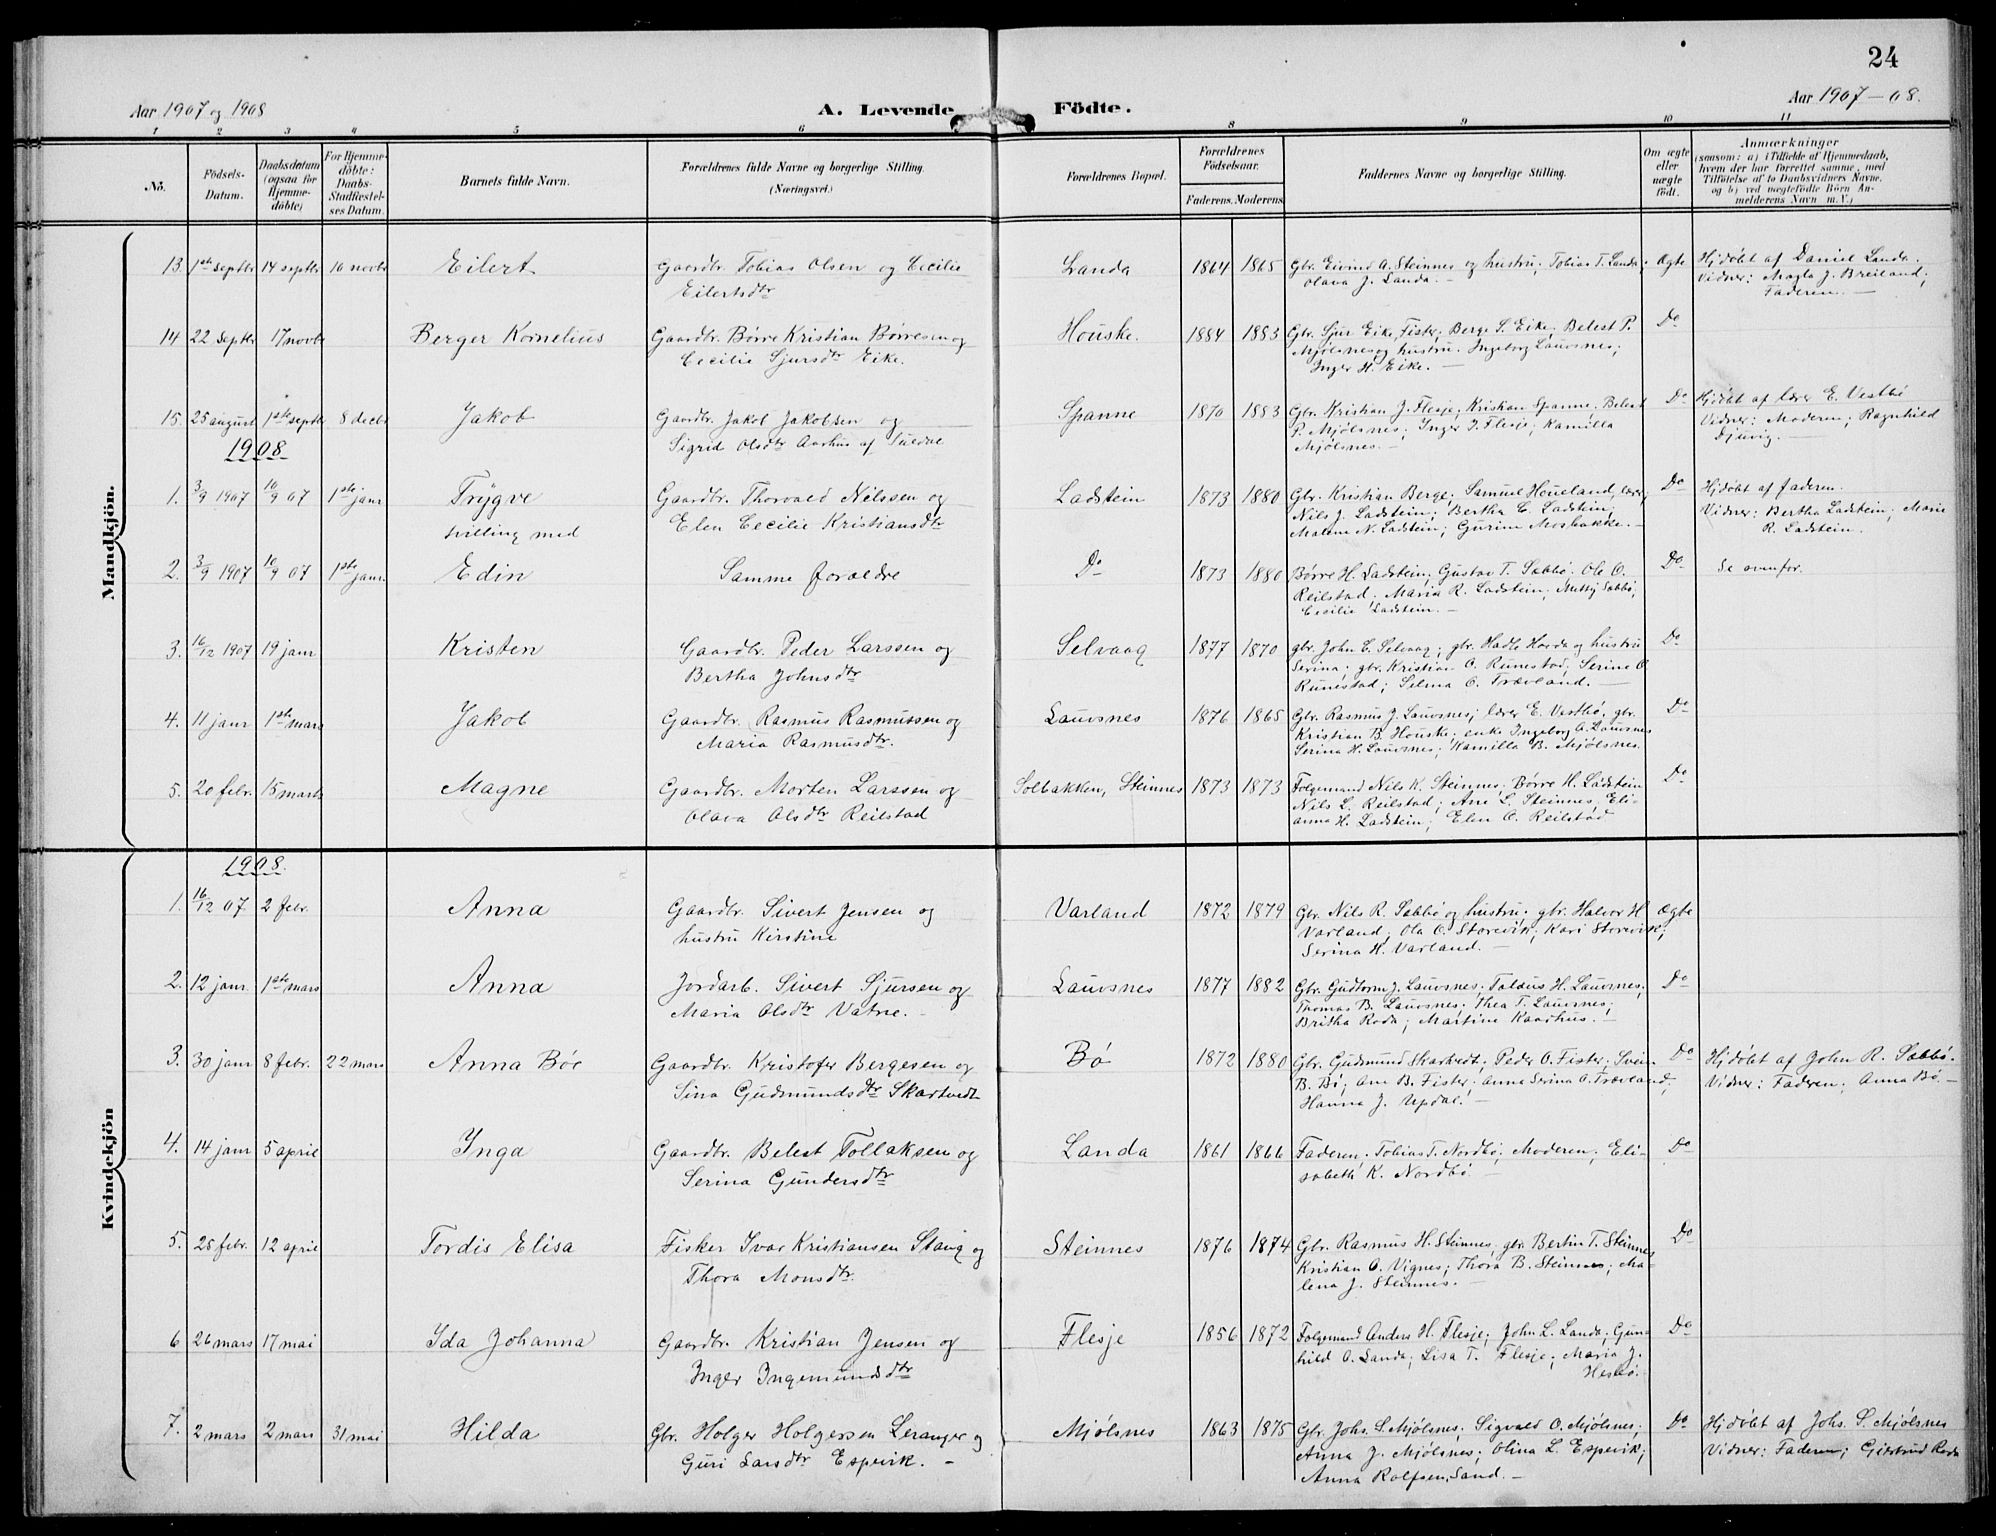 24
Aar 1907 og 1908
A. Levende Födte.
Aar 1907-08.
1 2 3 4 5 6 8 9 10 11
No.
Födsels-Datum.
Daabsdatum (ogsaa for Hjemme-döbte)
For Hjemme-döbte: Daabs-Stadfæstel-ses Datum.
Barnets fulde Navn.
Forældrenes fulde Navne og borgerlige Stilling. (Næringsvei.)
Forældrenes Bopæl.
Forældrenes Födselsaar.
Faderens. Moderens.
Faddernes Navne og borgerlige Stilling.
Om ægte eller uægte födt.
Anmærkninger
(saasom: a) i Tilfælde af Hjemmedaab,
hvem der har forrettet samme, med
Tilföielse af to Daabsvidners Navne,
og b) ved uægtefödte Börn An-
melderens Navn m. V.)
Mandkjön.
13. 1ste septbr 14 septbr 10 novbr Eilert Gaardbr. Tobias Olsen og Cecilie Landa 1864 1865 Gbr. Eivind A. Steinnes og hustru; Tobias T. Landa; Ægte Hjdöbt af Daniel Landa.
Eilertsdtr Olava J. Landa. — Vidner: Magla J. Breiland;
Faderen. —
14 22 septbr 17 novbr Berger Kornelius Gaardbr. Börre Kristian Börresen og Houske. 1884 1883 Gbr. Sjur Eike, Fister; Berge S. Eike; Belest P. Do
Cecilie Sjursdtr Eike. Mjölsnes og hustru. Ingeborg Lauvsnes;
Inger H. Eike. —
15. 25 august 1ste septbr 8 decbr Jakob Gaardbr. Jakob Jakobsen og Spanne 1870 1883 Gbr. Kristian J. Flesje; Kristian Spanne; Belest Do Hjdöbt af lærer E. Vestbö
Sigrid Olsdtr Aarhus af Suldal P. Mjölsnes; Inger J. Flesje; Kamilla Vidner: Moderen; Ragnhild
Mjölsnes. — Djuvig. —
1908.
1. 3/9 1907 10/9 07 1ste janr Trygve Gaardbr. Thorvald Nilssen og Ladstein 1873 1880 Gbr. Kristian Berge; Samuel Houeland, lærer; Do Hjdöbt af faderen.
tvilling med Elen Cecilie Kristiansdtr Nils J. Ladstein; Bertha C. Ladstein; Vidner: Bertha Ladstein; Marie
Malene N. Ladstein; Gurine Mosbakke. — R. Ladstein.
2. 3/9 1907 10/9 07 1ste janr. Edin Samme forældre Do 1873 1880 Börre H. Ladstein; Gustav T. Sabbö. Ole O. Do Se ovenfor.
Reilstad. Maria R. Ladstein; Metty Sabbö;
Cecilie Ladstein. —
3. 16/12 1907 19 janr Kristen Gaardbr. Peder Larssen og Selvaag 1877 1870 gbr. John E. Selvaag; gbr. Hadle Horda og hustru Do
Bertha Johnsdtr Serina; gbr. Kristian O. Runestad; Serine O
Runestad; Selma O. Trævland. —
4. 11 janr 1ste mars Jakob Gaardbr. Rasmus Rasmussen og Lauvsnes 1876 1865 Gbr. Rasmus J. Lauvsnes; lærer E. Vestbö; gbr. Do
Maria Rasmusdtr. Kristian B. Houske; enke Ingeborg A. Lauvsnes
Serina H. Lauvsnes; Kamilla B. Mjölsnes.
5. 20 febr. 15 marts Magne Gaardbr. Morten Larssen og Solbakken, Steinnes 1873 1873 Folgemand Nils K. Steinnes; Börre H. Ladstein Do
Olava Olsdtr Reilstad Nils L. Reilstad; Ane L. Steinnes, Eli-
anna H. Ladstein; Elen O. Reilstad
Kvindekjön
1908.
1. 16/12 07. 2 febr. Anna Gaardbr. Sivert Jensen og Varland 1872 1879 Gbr. Nils R. Sabbö og hustru; gbr. Halvor H Ægte
hustru Kirstine Varland; Ola O. Storevik; Kari Storevik;
Serina H. Varland. —
2. 12 janr. 1ste mars Anna Jordarb. Sivert Sjursen og Lauvsnes 1877 1882 Gbr. Gudtorm J. Lauvsnes. Taldus H. Lauvsnes; Do
Maria Olsdtr Vatne. — Thomas B. Lauvsnes; Thea T. Lauvsnes;
Britha Roda; Martine Kaarhus. —
3. 30 janr 8 febr. 22 mars Anna Böe Gaardbr. Kristofer Bergesen og Bö 1872 1880 Gbr. Gudmund Skartvedt; Peder O. Fister; Svein Do Hjdöbt af John R. Sabbö.
Sina Gudmundsdtr Skartvedt B. Bö; Ane B. Fister; Anna Serina O. Trævland; Vidner: Faderen; Anna Bö. —
Hanna J. Updal. —
4. 14 janr 5 april Inga Gaardbr. Belest Tollaksen og Landa 1861 1866 Faderen. Tobias T. Nordbö; Moderen; Eli- Do
Serina Gundersdtr sabeth K. Nordbö
5. 25 febr. 12 april Tordis Elisa Fisker Ivar Kristiansen Stang og Steinnes 1876 1874 Gbr. Rasmus H. Steinnes, gbr. Bertin T. Steinnes Do
Thora Monsdtr. Kristian O. Vignes; Thora B. Steinnes; Ma-
lena J. Steinnes. —
6 26 mars 17 mai Ida Johanna Gaardbr. Kristian Jensen og Flesje 1856 1872 Folgemand Anders H. Flesje; John L. Landa; Gun- Do
Inger Ingemundsdtr hild O. Landa; Lisa T. Flesje; Maria J.
Hesbö.
7. 2 mars 2 mars 31 mai Hilda Gbr. Holger Holgersen Leranger og Mjölsnes 1863 1875 Gbr. Johs. S. Mjölsnes; Sigvald O. Mjölsnes; Do Hjdöbt af Johs. S. Mjölsnes
Guri Larsdtr Espevik. — Anna J. Mjölsnes; Olina L. Espevik; Vidner: Faderen; Gjertrud Roda
Anna Rolfsen, Sand. —